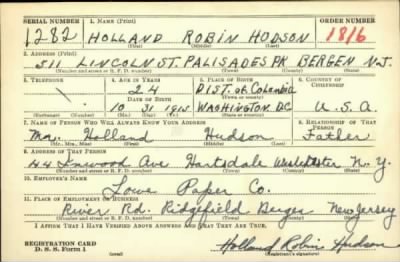 SERIAL NUMBER 1. NAME (Print) ORDER NUMBER
1282 HOLLAND ROBIN HUDSON 1816
(First) (Middle) (Last)
2. ADDRESS (Print)
511 LINCOLN ST. PALISADES PK BERGEN N.J.
(Number and street or R. F. D. number) (Town) (County) (State)
3. TELEPHONE 4. AGE IN YEARS 5. PLACE OF BIRTH 6. COUNTRY OF CITIZENSHIP
24 DIST. of Columbia
DATE OF BIRTH (Town or county)
10 31 1915 WASHINGTON DC U.S.A.
(Exchange) (Number) (Mo.) (Day) (Yr.) (State or country)
7. NAME OF PERSON WHO WILL ALWAYS KNOW YOUR ADDRESS 8. RELATIONSHIP OF THAT PERSON
Mr. Holland Hudson Father
(Mr., Mrs., Miss) (First) (Middle) (Last)
9. ADDRESS OF THAT PERSON
44 Inwood Ave Hartsdale Westchester N.Y.
(Number and street or R. F. D. number) (Town) (County) (State)
10. EMPLOYER'S NAME
Lowe Paper Co.
11. PLACE OF EMPLOYMENT OR BUSINESS
River Rd. Ridgefield Bergen New Jersey
(Number and street or R. F. D. number) (Town) (County) (State)
I AFFIRM THAT I HAVE VERIFIED ABOVE ANSWERS AND THAT THEY ARE TRUE.
REGISTRATION CARD
D. S. S. Form 1 Holland Robin Hudson
(over) (Registrant's signature)